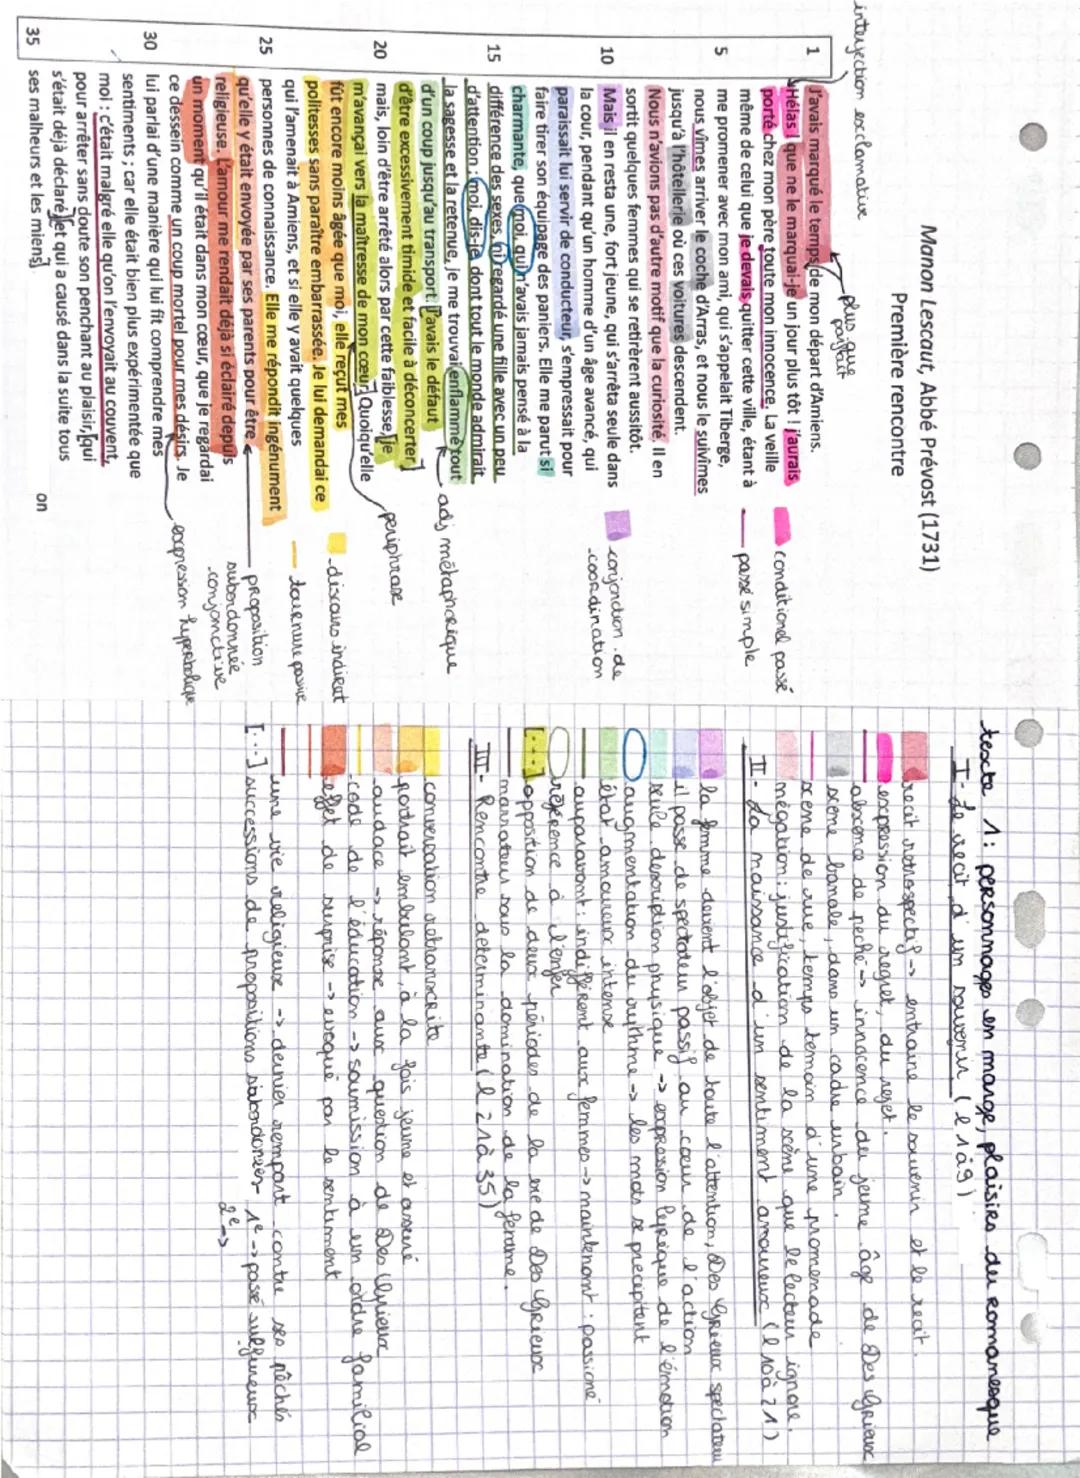 Manon Lescaut, Abbé Prévost (1731)
Première rencontre
interjection exclamative
plus que
parfait
1
J'avais marqué le temps de mon départ d'Amiens.
Hélas ! que ne le marquai-je un jour plus tôt ! j'aurais
porté chez mon père toute mon innocence. La veille
même de celui que je devais quitter cette ville, étant à
me promener avec mon ami, qui s'appelait Tiberge,
5
nous vîmes arriver le coche d'Arras, et nous le suivîmes
jusqu'à l'hôtellerie où ces voitures descendent.
Nous n'avions pas d'autre motif que la curiosité. Il en
sortit quelques femmes qui se retirèrent aussitôt.
Mais il en resta une, fort jeune, qui s'arrêta seule dans
10
la cour, pendant qu'un homme d'un âge avancé, qui
paraissait lui servir de conducteur, s'empressait pour
faire tirer son équipage des paniers. Elle me parut si
charmante, que moi, qui n'avais jamais pensé à la
différence des sexes, ni regardé une fille avec un peu
15
d'attention ; moi, dis-je, dont tout le monde admirait
la sagesse et la retenue, je me trouvai enflammé tout
d'un coup jusqu'au transport. [J'avais le défaut
d'être excessivement timide et facile à déconcerter ;]
mais, loin d'être arrêté alors par cette faiblesse, [je
20
m'avançai vers la maîtresse de mon cœur.] Quoiqu'elle
fût encore moins âgée que moi, elle reçut mes
politesses sans paraître embarrassée. Je lui demandai ce
qui l'amenait à Amiens, et si elle y avait quelques
personnes de connaissance. Elle me répondit ingénument
25
qu'elle y était envoyée par ses parents pour être
religieuse. L'amour me rendait déjà si éclairé depuis
un moment qu'il était dans mon cœur, que je regardai
ce dessein comme un coup mortel pour mes désirs. Je
lui parlai d'une manière qui lui fit comprendre mes
30
sentiments ; car elle était bien plus expérimentée que
moi : c'était malgré elle qu'on l'envoyait au couvent,
pour arrêter sans doute son penchant au plaisir, [qui
s'était déjà déclaré] [et qui a causé dans la suite tous
ses malheurs et les miens].
35
on
conditionel passé
passé simple
conjonction de
coordination
adj métaphorique
periphrase
discours indirect
tournure passive
proposition
subordonnée
conjonctive
expression hyperbolique
texte 1 : personnages en marge, plaisirs du romanesque
I - Le recit d'un souvenir (l 1 à 9)
recit retrospectif -> entraine le souvenir et le recit.
expression du regret, du rejet.
abscence de peché -> innocence du jeune âge de Des Grieux
scène banale, dans un cadre urbain.
scène de rue, temps temoin d'une promenade
négation : justification de la scène que le lecteur ignore.
II - La naissance d'un sentiment amoureux (l 10 à 21)
la femme devient l'objet de toute l'attention, Des Grieux spectateur
il passe de spectateur passif au cœur de l'action
seule description physique -> expression lyrique de l'émotion
augmentation du rythme -> les mots se precipitent
état amoureux intense
auparavant : indifférent aux femmes -> maintenant : passioné
référence à l'enfer
[...] opposition de deux périodes de la vie de Des Grieux
narrateur sous la domination de la femme.
III - Rencontre determinante (l 21 à 35)
conversation retranscrite
portrait embulant, à la fois jeune et assuré
audace -> réponse aux question de Des Grieux
code de l'éducation -> soumission à un ordre familial
effet de surprise -> evoqué par le sentiment
une vie religieuse -> dernier rempart contre ses pêchés
[...] successions de propositions subordonées 1e -> passé sulfureux
2e ->